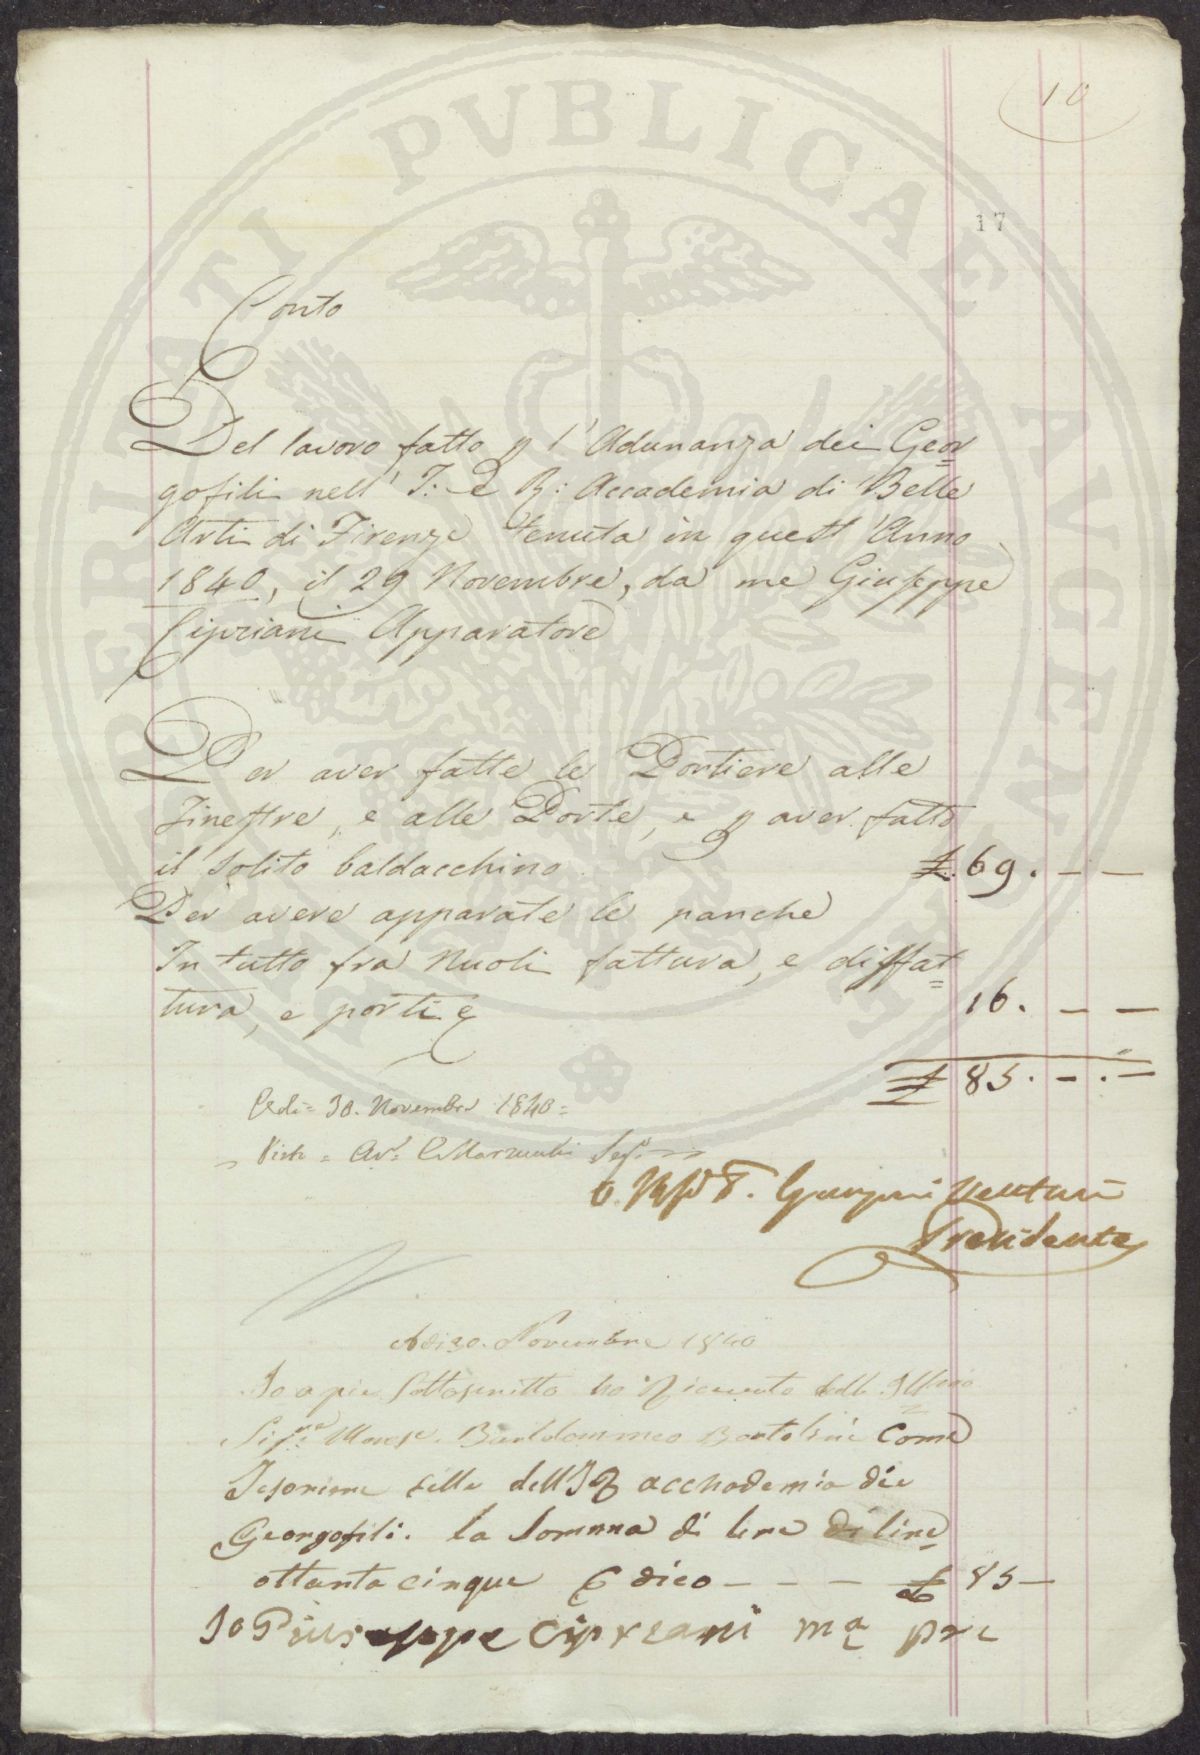 10
17
Conto
Del lavoro fatto p l'Adunanza dei Geor=
gofili nell' I: e R: Accademia di Belle
Arti di Firenze tenuta in quest'Anno
1840, il 29 Novembre, da me Giuseppe
Cipriani Apparatore
Per aver fatte le Portiere alle
Finestre, e alle Porte, e p aver fatto
il solito baldacchino £. 69. — —
Per avere apparate le panche
In tutto fra Nuoli fattura, e disfat=
tura, e porti 16. — —
£ 85. —. —
Adi= 30. Novembre 1840=
Visto = Avv. Seg.
Venturi
Presidente
Adi 30. Novembre 1840
Io a pie Sottoscritto ho Ricevuto dall Illmo
Sig.re Bartolommeo Bartolini Come
Tesoriere della dell I R acchademia die
Georgofili. la Somma di lire di lire
ottanta cinque dico — — — £ 85 —
Io Giuseppe Cipriani ma pra
PVBLICAE